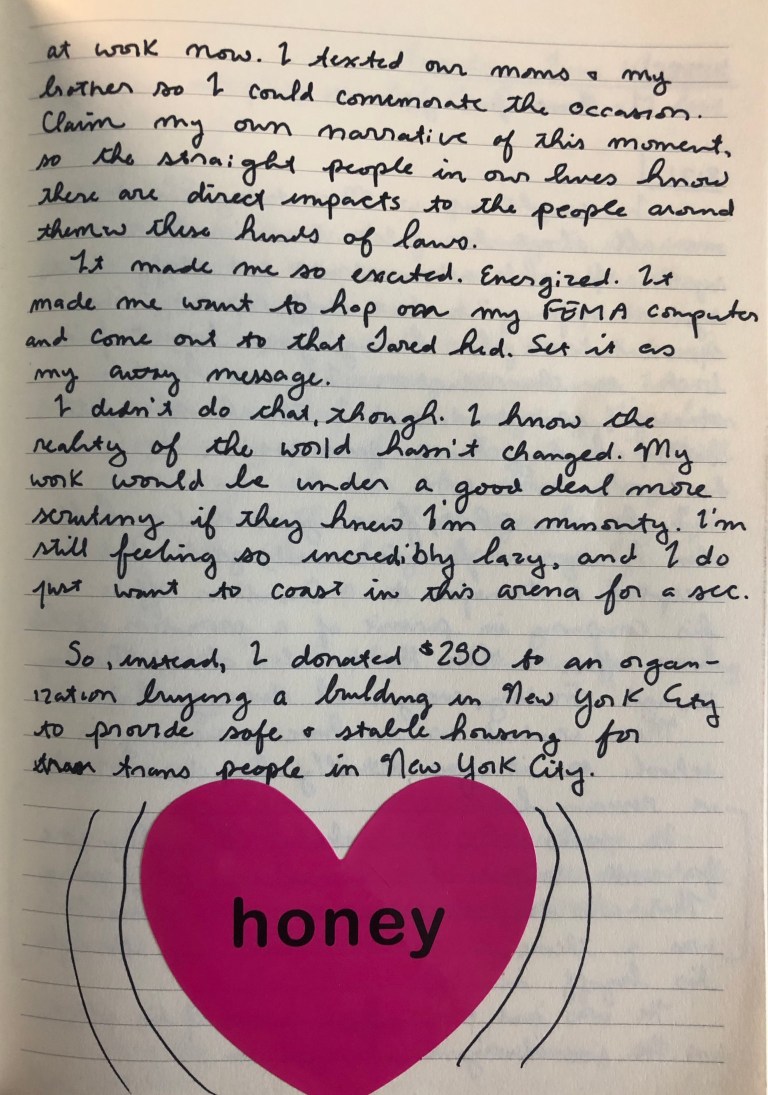 at work now. I texted our moms & my
brother so I could comemorate the occasion.
Claim my own narrative of this moment,
so the straight people in our lives know
there are direct impacts to the people around
them w these kinds of laws.
It made me so excited. Energized. It
made me want to hop on my FEMA computer
and come out to that Jared kid. Set it as
my away message.
I didn't do that, though. I know the
reality of the world hasn't changed. My
work would be under a good deal more
scrutiny if they knew I'm a minority. I'm
still feeling so incredibly lazy, and I do
just want to coast in this arena for a sec.
So, instead, I donated $290 to an organ-
ization buying a building in New York City
to provide safe & stable housing for
trans people in New York City.
honey